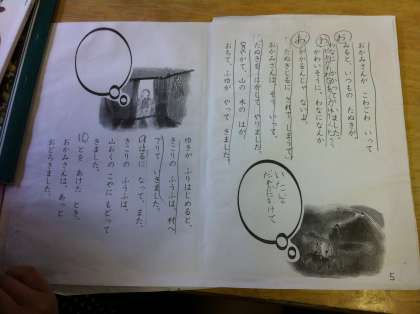 おかみさんが こわごわ いって
みると、いつもの たぬきが、
わなに かかって いました。
「かわいそうに。わなになんか
かかるんじゃ ないよ。
たぬきじるに されて しまうで。」
おかみさんは、そう いって、
たぬきを にがして やりました。
やがて、山の 木の はが
おちて、ふゆが やって きました。
だれかたすけて
5
ゆきが ふりはじめると、
きこりの ふうふは、村へ
下りて いきました。
はるに なって、また、
きこりの ふうふは、
山おくの こやに もどって
きました。
とを あけた とき、
おかみさんは、あっと
おどろきました。